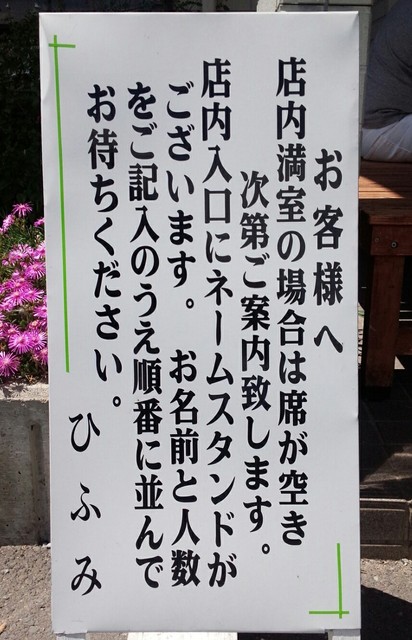 お客様へ
店内満室の場合は席が空き
次第ご案内致します。
店内入口にネームスタンドが
ございます。 お名前と人数
をご記入のうえ順番に並んで
お待ちください。
ひふみ